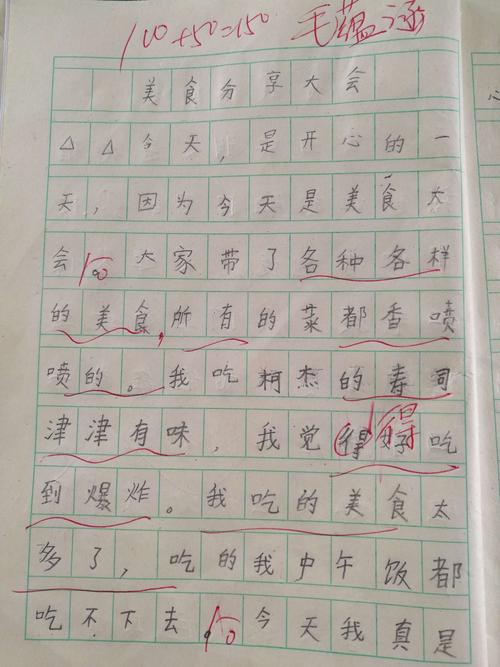 100+50=150 毛蕴涵
美食分享大会
△△今天，是开心的一
天，因为今天是美食大
会。大家带了各种各样
的美食，所有的菜都香喷
喷的。我吃柯杰的寿司
津津有味，我觉得好吃
到爆炸。我吃的美食太
多了，吃的我中午饭都
吃不下去。今天我真是